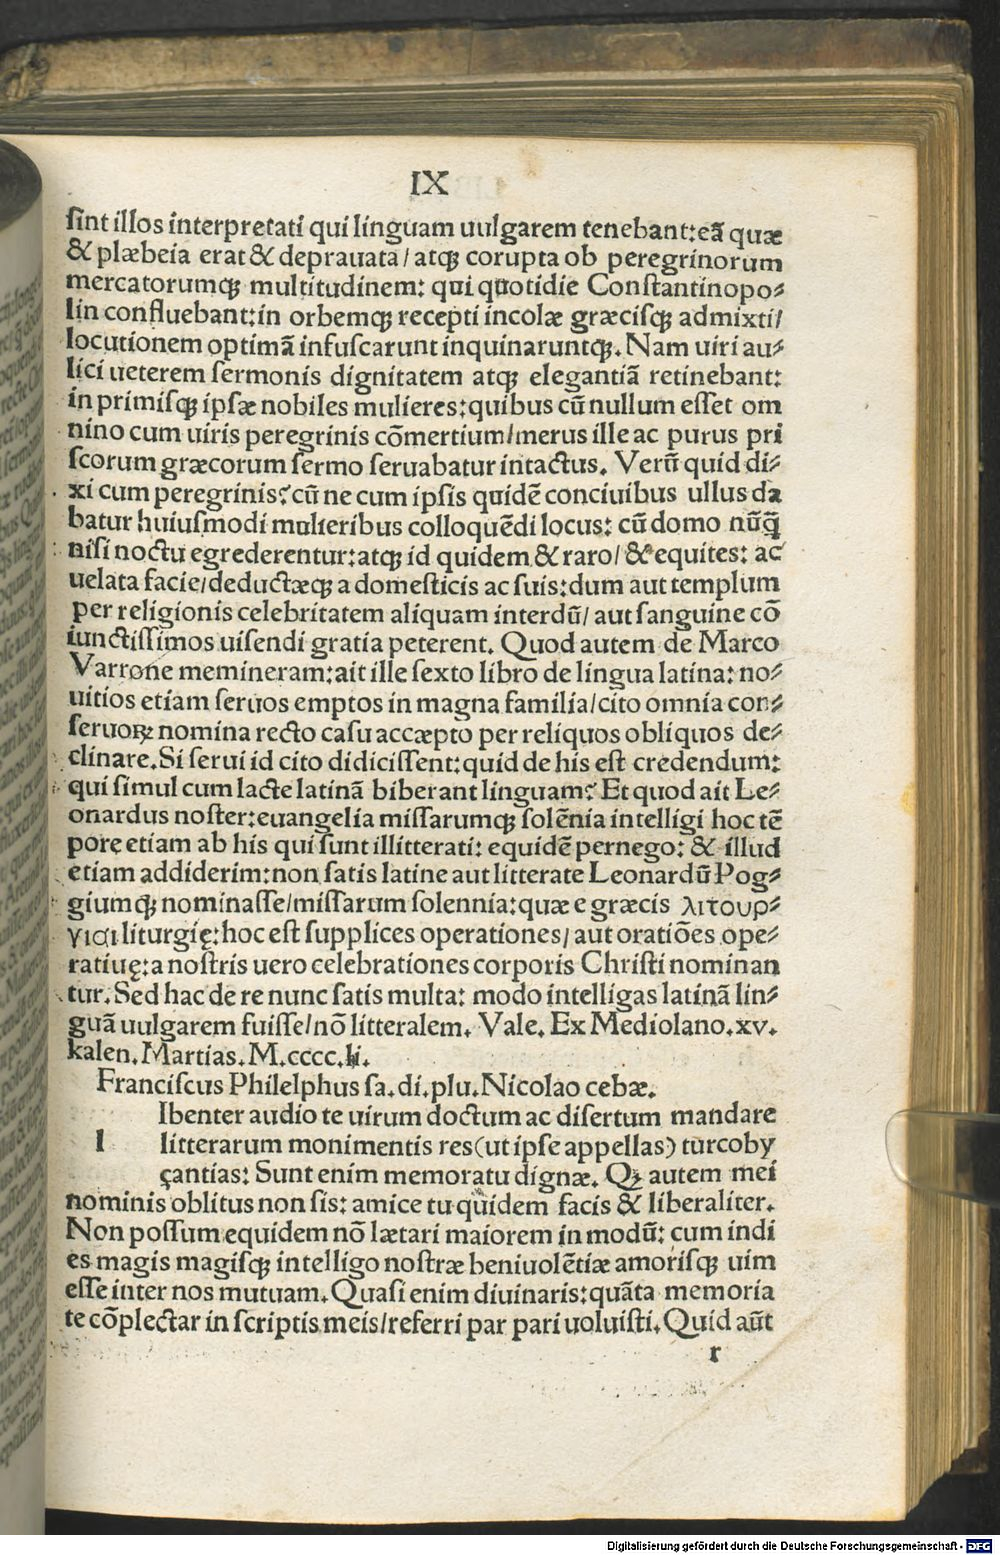 IX
sint illos interpretati qui linguam uulgarem tenebant:eã quæ
& plæbeia erat & deprauata/ atq; corupta ob peregrinorum
mercatorumq; multitudinem: qui quotidie Constantinopo⸗
lin confluebant:in orbemq; recepti incolæ græcisq; admixti/
locutionem optimã infuscarunt inquinaruntq;. Nam uiri au⸗
lici ueterem sermonis dignitatem atq; elegantiã retinebant:
in primisq; ipsæ nobiles mulieres:quibus cũ nullum esset om
nino cum uiris peregrinis cõmertium/merus ille ac purus pri
scorum græcorum sermo seruabatur intactus. Verũ quid di⸗
xi cum peregrinis? cũ ne cum ipsis quidẽ conciuibus ullus da
batur huiusmodi mulieribus colloquẽdi locus: cũ domo nũq̃
nisi noctu egrederentur:atq; id quidem & raro/ & equites: ac
uelata facie/deductæq; a domesticis ac suis:dum aut templum
per religionis celebritatem aliquam interdũ/ aut sanguine cõ
iunctissimos uisendi gratia peterent. Quod autem de Marco
Varrone memineram:ait ille sexto libro de lingua latina: no⸗
uitios etiam seruos emptos in magna familia/cito omnia con⸗
seruoꝝ nomina recto casu accæpto per reliquos obliquos de⸗
clinare.Si serui id cito didicissent:quid de his est credendum:
qui simul cum lacte latinã biberant linguam? Et quod ait Le⸗
onardus noster:euangelia missarumq; solẽnia intelligi hoc tẽ
pore etiam ab his qui sunt illitterati: equidẽ pernego: & illud
etiam addiderim:non satis latine aut litterate Leonardũ Pog⸗
giumq; nominasse/missarum solennia:quæ e græcis λιτουρ⸗
γιαι liturgię:hoc est supplices operationes/ aut oratiões ope⸗
ratiuę:a nostris uero celebrationes corporis Christi nominan
tur. Sed hac de re nunc satis multa: modo intelligas latinã lin⸗
guã uulgarem fuisse/nõ litteralem. Vale. Ex Mediolano.xv.
kalen. Martias. M.cccc.li.
Franciscus Philelphus sa. di. plu. Nicolao cebæ.
Ibenter audio te uirum doctum ac disertum mandare
l litterarum monimentis res(ut ipse appellas) turcoby
çantias: Sunt enim memoratu dignæ. Qꝫ autem mei
nominis oblitus non sis: amice tu quidem facis & liberaliter.
Non possum equidem nõ lætari maiorem in modũ: cum indi
es magis magisq; intelligo nostræ beniuolẽtiæ amorisq; uim
esse inter nos mutuam. Quasi enim diuinaris:quãta memoria
te cõplectar in scriptis meis/referri par pari uoluisti. Quid aũt
r
Digitalisierung gefördert durch die Deutsche Forschungsgemeinschaft - DFG